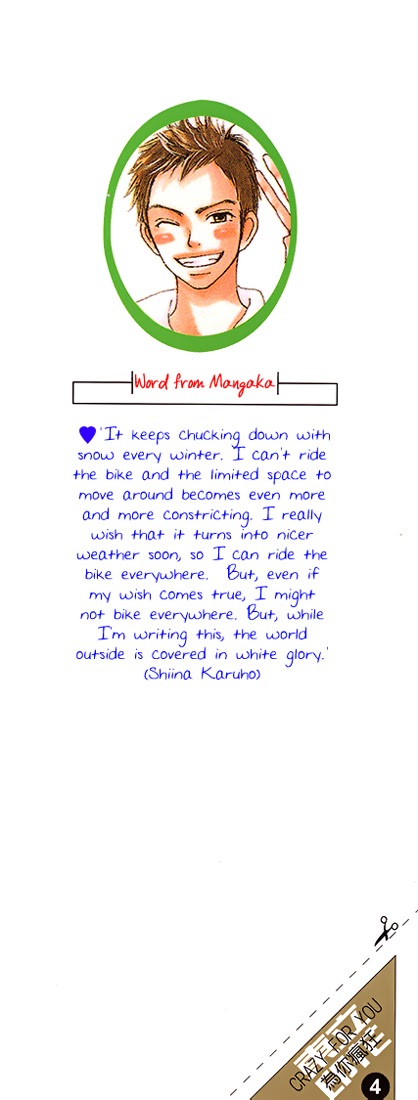 Word from Mangaka
♥'It keeps chucking down with
snow every winter. I can't ride
the bike and the limited space to
move around becomes even more
and more constricting. I really
wish that it turns into nicer
weather soon, so I can ride the
bike everywhere. But, even if
my wish comes true, I might
not bike everywhere. But, while
I'm writing this, the world
outside is covered in white glory.'
(Shiina Karuho)
CRAZY FOR YOU
為你瘋狂
4